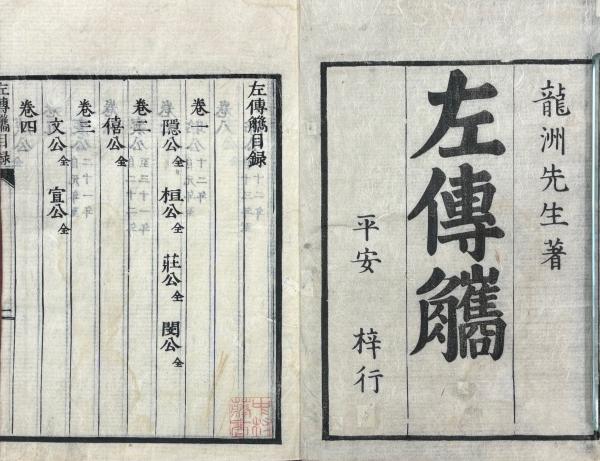 龍洲先生著
左傳觿
平安 梓行
左傳觿目録
卷一
隱公全 桓公全 莊公全 閔公全
卷二
僖公全
卷三
文公全 宣公全
卷四
左傳觿目録